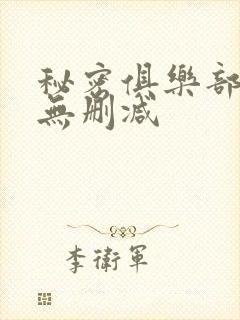 秘密俱樂部
無刪減
李衛軍